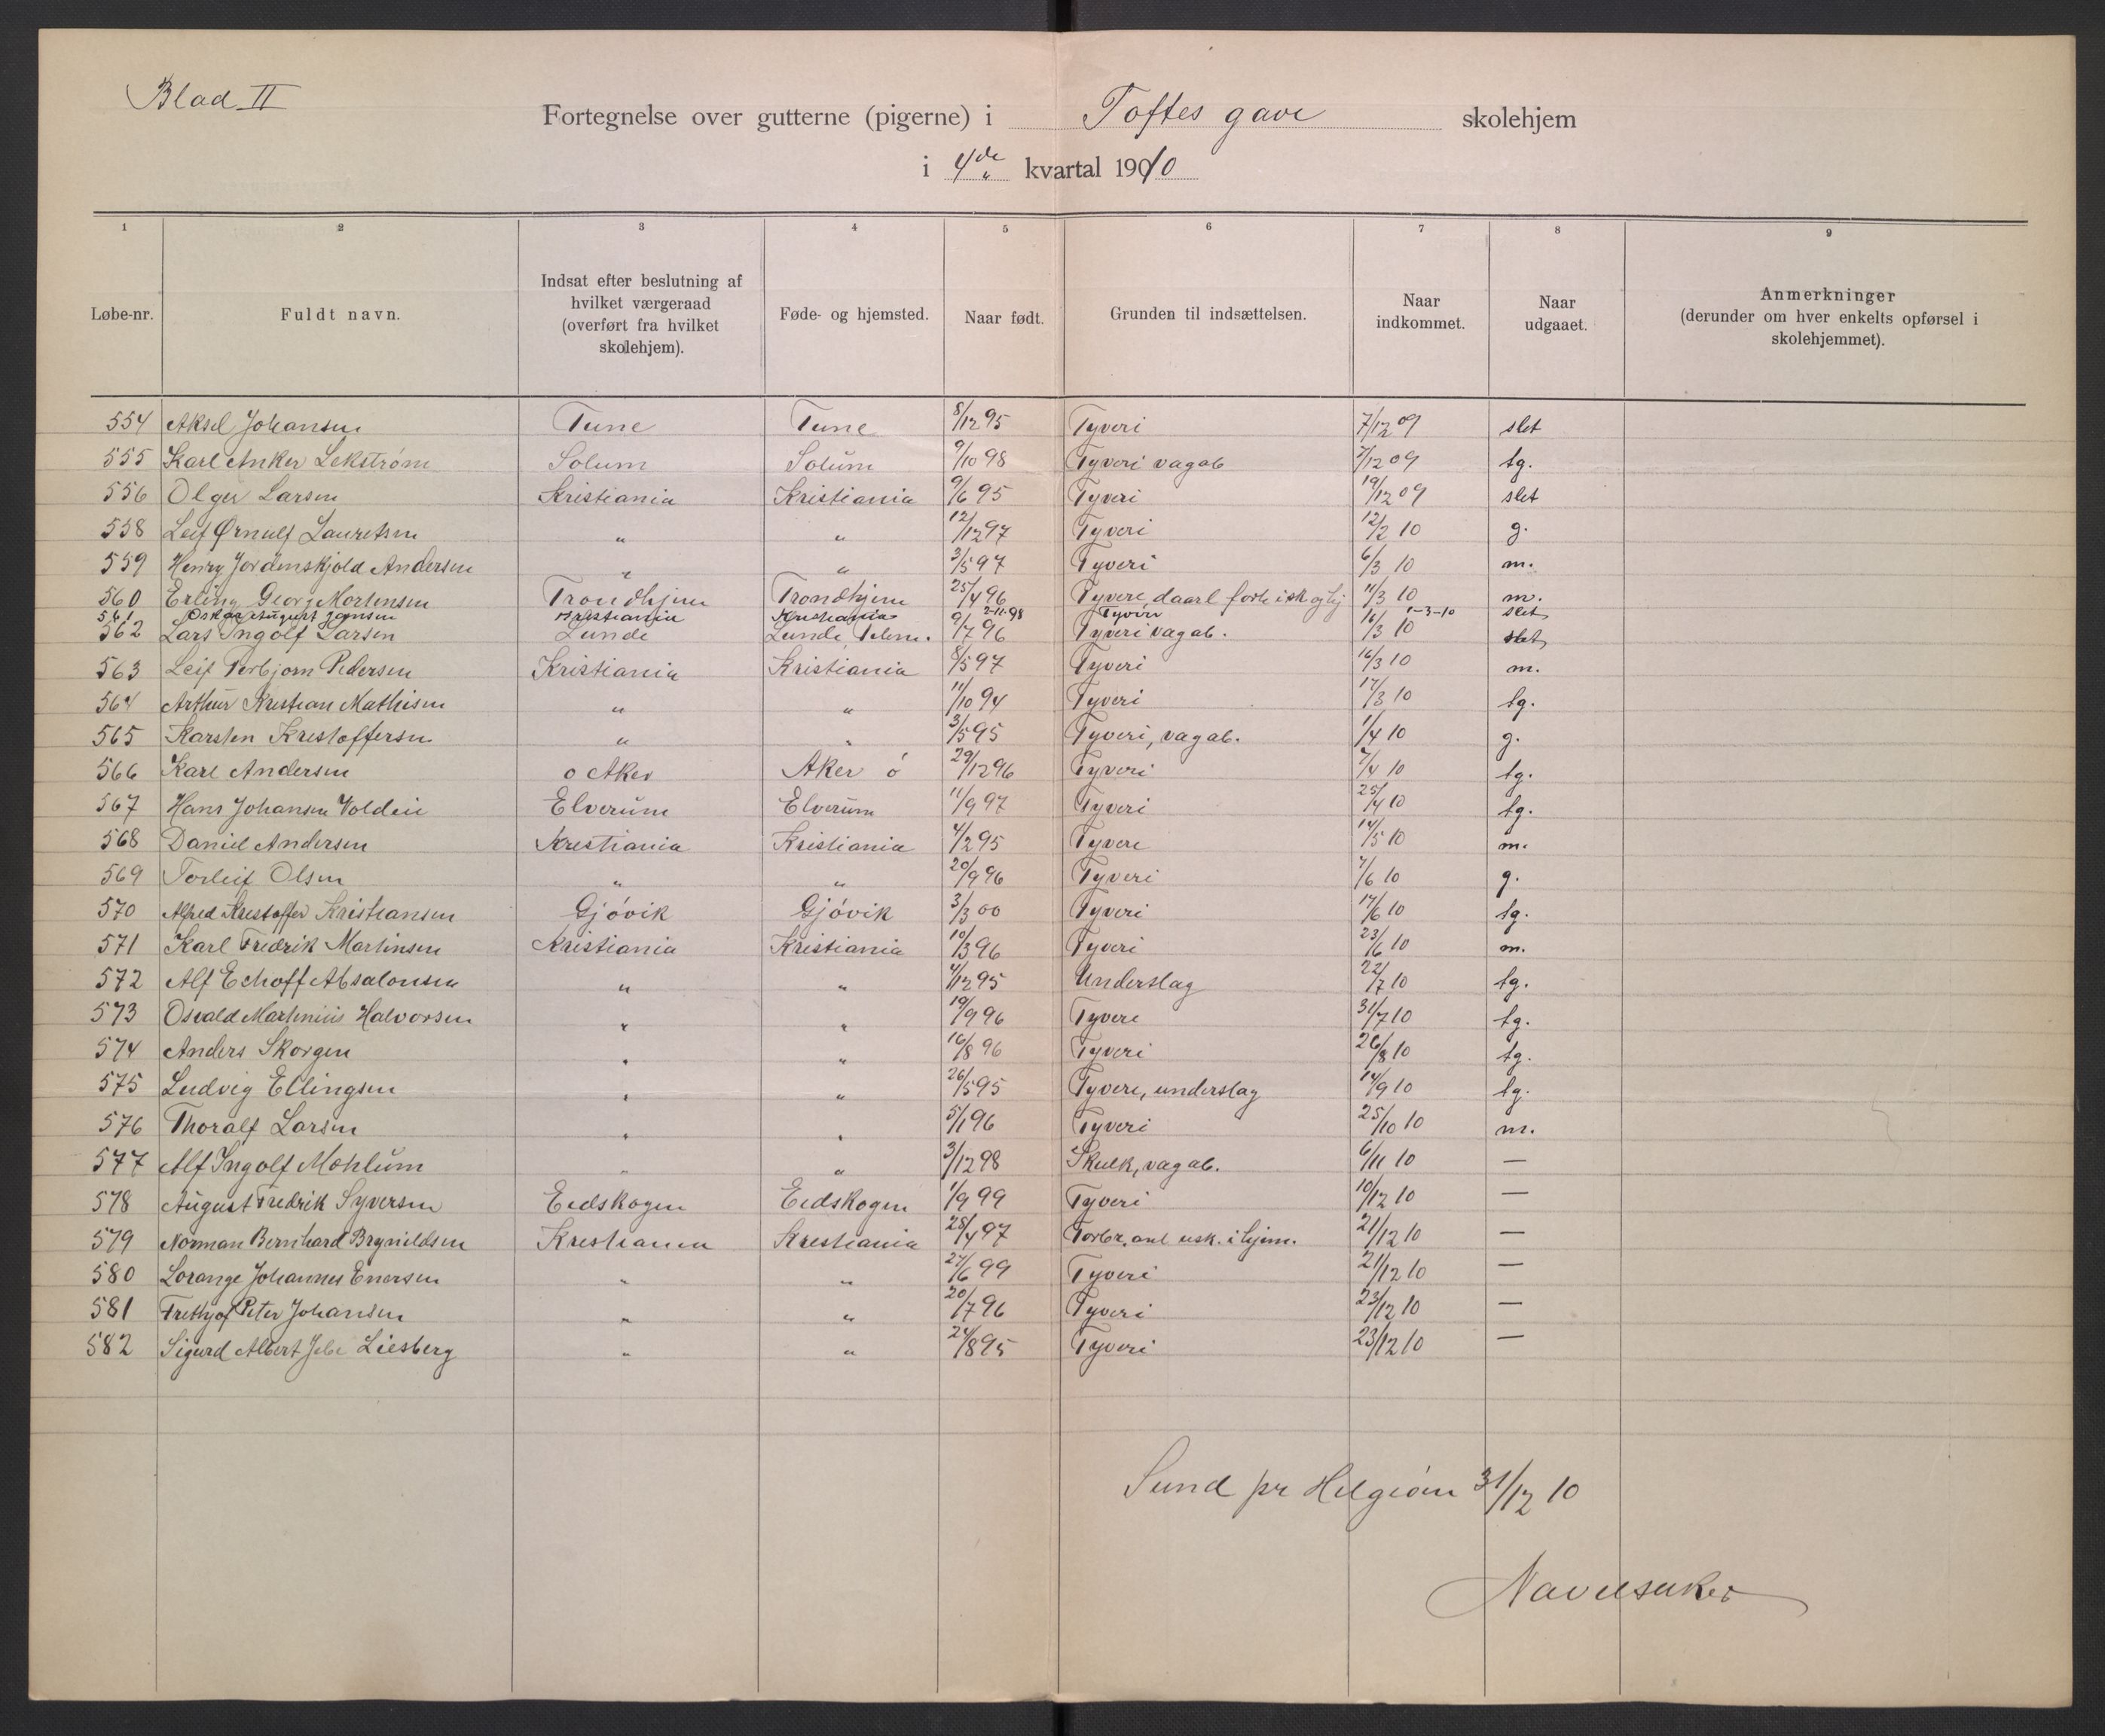 Blad II
Fortegnelse over gutterne (pigerne) i Toftes gave skolehjem
i 4de kvartal 1910
1 2 3 4 5 6 7 8 9
Løbe-nr. Fuldt navn. Indsat efter beslutning af hvilket værgeraad (overført fra hvilket skolehjem). Føde- og hjemsted. Naar født. Grunden til indsættelsen. Naar indkommet. Naar udgaaet. Anmerkninger (derunder om hver enkelts opførsel i skolehjemmet).
554 Aksel Johansen Tune Tune 8/12 95 Tyveri 7/12 09 slet
555 Karl Anker Lekström Solum Solum 9/10 98 Tyveri vagab 7/12 09 tg.
556 Olger Larsen Kristiania Kristiania 9/6 95 Tyveri 19/12 09 slet
558 Leif Ørnulf Lauretsen " " 12/12 97 Tyveri 12/2 10 g.
559 Henry Jordenskjold Andersen " " 3/5 97 Tyveri 6/3 10 m.
560 Erling Georg Mortensen Trondhjem Trondhjem 25/4 96 Tyveri daarl forh i sk og hj 11/3 10 m.
561 Oskar August Jansen Kristiania Kristiania 2-11-98 Tyveri 1-3-10 slet
562 Lars Ingolf Larsen Lunde Lunde, Telem. 9/7 96 Tyveri vagab. 16/3 10 slet
563 Leif Torbjørn Pedersen Kristiania Kristiania 8/5 97 Tyveri 16/3 10 m.
564 Arthur Kristian Mathisen " " 11/10 94 Tyveri 17/3 10 tg.
565 Karsten Kristoffersen " " 3/5 95 Tyveri, vagab. 1/4 10 g.
566 Karl Andersen ø Aker Aker ø 29/12 96 Tyveri 7/4 10 tg.
567 Hans Johansen Volden Elverum Elverum 11/9 97 Tyveri 25/4 10 tg.
568 Daniel Andersen Kristiania Kristiania 4/2 95 Tyveri 14/5 10 m.
569 Torleif Olsen " " 20/9 96 Tyveri 7/6 10 g.
570 Alfred Kristoffer Kristiansen Gjövik Gjövik 3/3 00 Tyveri 17/6 10 tg.
571 Karl Fredrik Martinsen Kristiania Kristiania 10/3 96 Tyveri 23/6 10 m.
572 Alf Echoff Absalonsen " " 4/12 95 Underslag 22/7 10 tg.
573 Osvald Martinius Halvorsen " " 19/9 96 Tyveri 31/7 10 tg.
574 Anders Skorgen " " 16/8 96 Tyveri 26/8 10 tg.
575 Ludvig Ellingsen " " 26/5 95 Tyveri, underslag 14/9 10 tg.
576 Thoralf Larsen " " 5/1 96 Tyveri 25/10 10 m.
577 Alf Ingolf Mohlum " " 3/12 98 Skulk, vagab. 6/11 10 —
578 August Fredrik Syversen Eidskogen Eidskogen 1/9 99 Tyveri 10/12 10 —
579 Norman Bernhard Brynildsen Kristiania Kristiania 28/4 97 Forbr. anl usk. i hjem. 21/12 10 —
580 Lorange Johannes Enersen " " 27/6 99 Tyveri 21/12 10 —
581 Frethjof Peter Johansen " " 20/7 96 Tyveri 23/12 10 —
582 Sigurd Albert Liesberg " " 24/8 95 Tyveri 23/12 10 —
Sund pr Helgøen 31/12 10